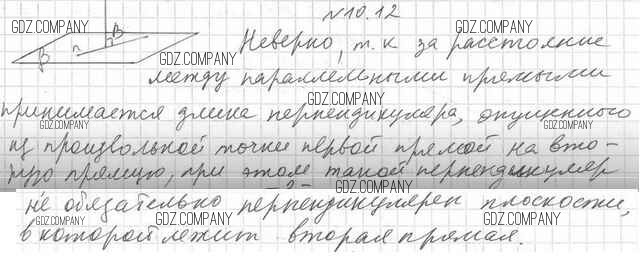 №10.12
GDZ.COMPANY GDZ.COMPANY
B
n B
β
Неверно, т.к за расстояние
GDZ.COMPANY
между параллельными прямыми
GDZ.COMPANY
принимается длина перпендикуляра, опущенного
GDZ.COMPANY GDZ.COMPANY
из произвольной точки первой прямой на вто-
рую прямую, при этом такой перпендикуляр
GDZ.COMPANY
не обязательно перпендикулярен плоскости,
GDZ.COMPANY GDZ.COMPANY
в которой лежит вторая прямая.